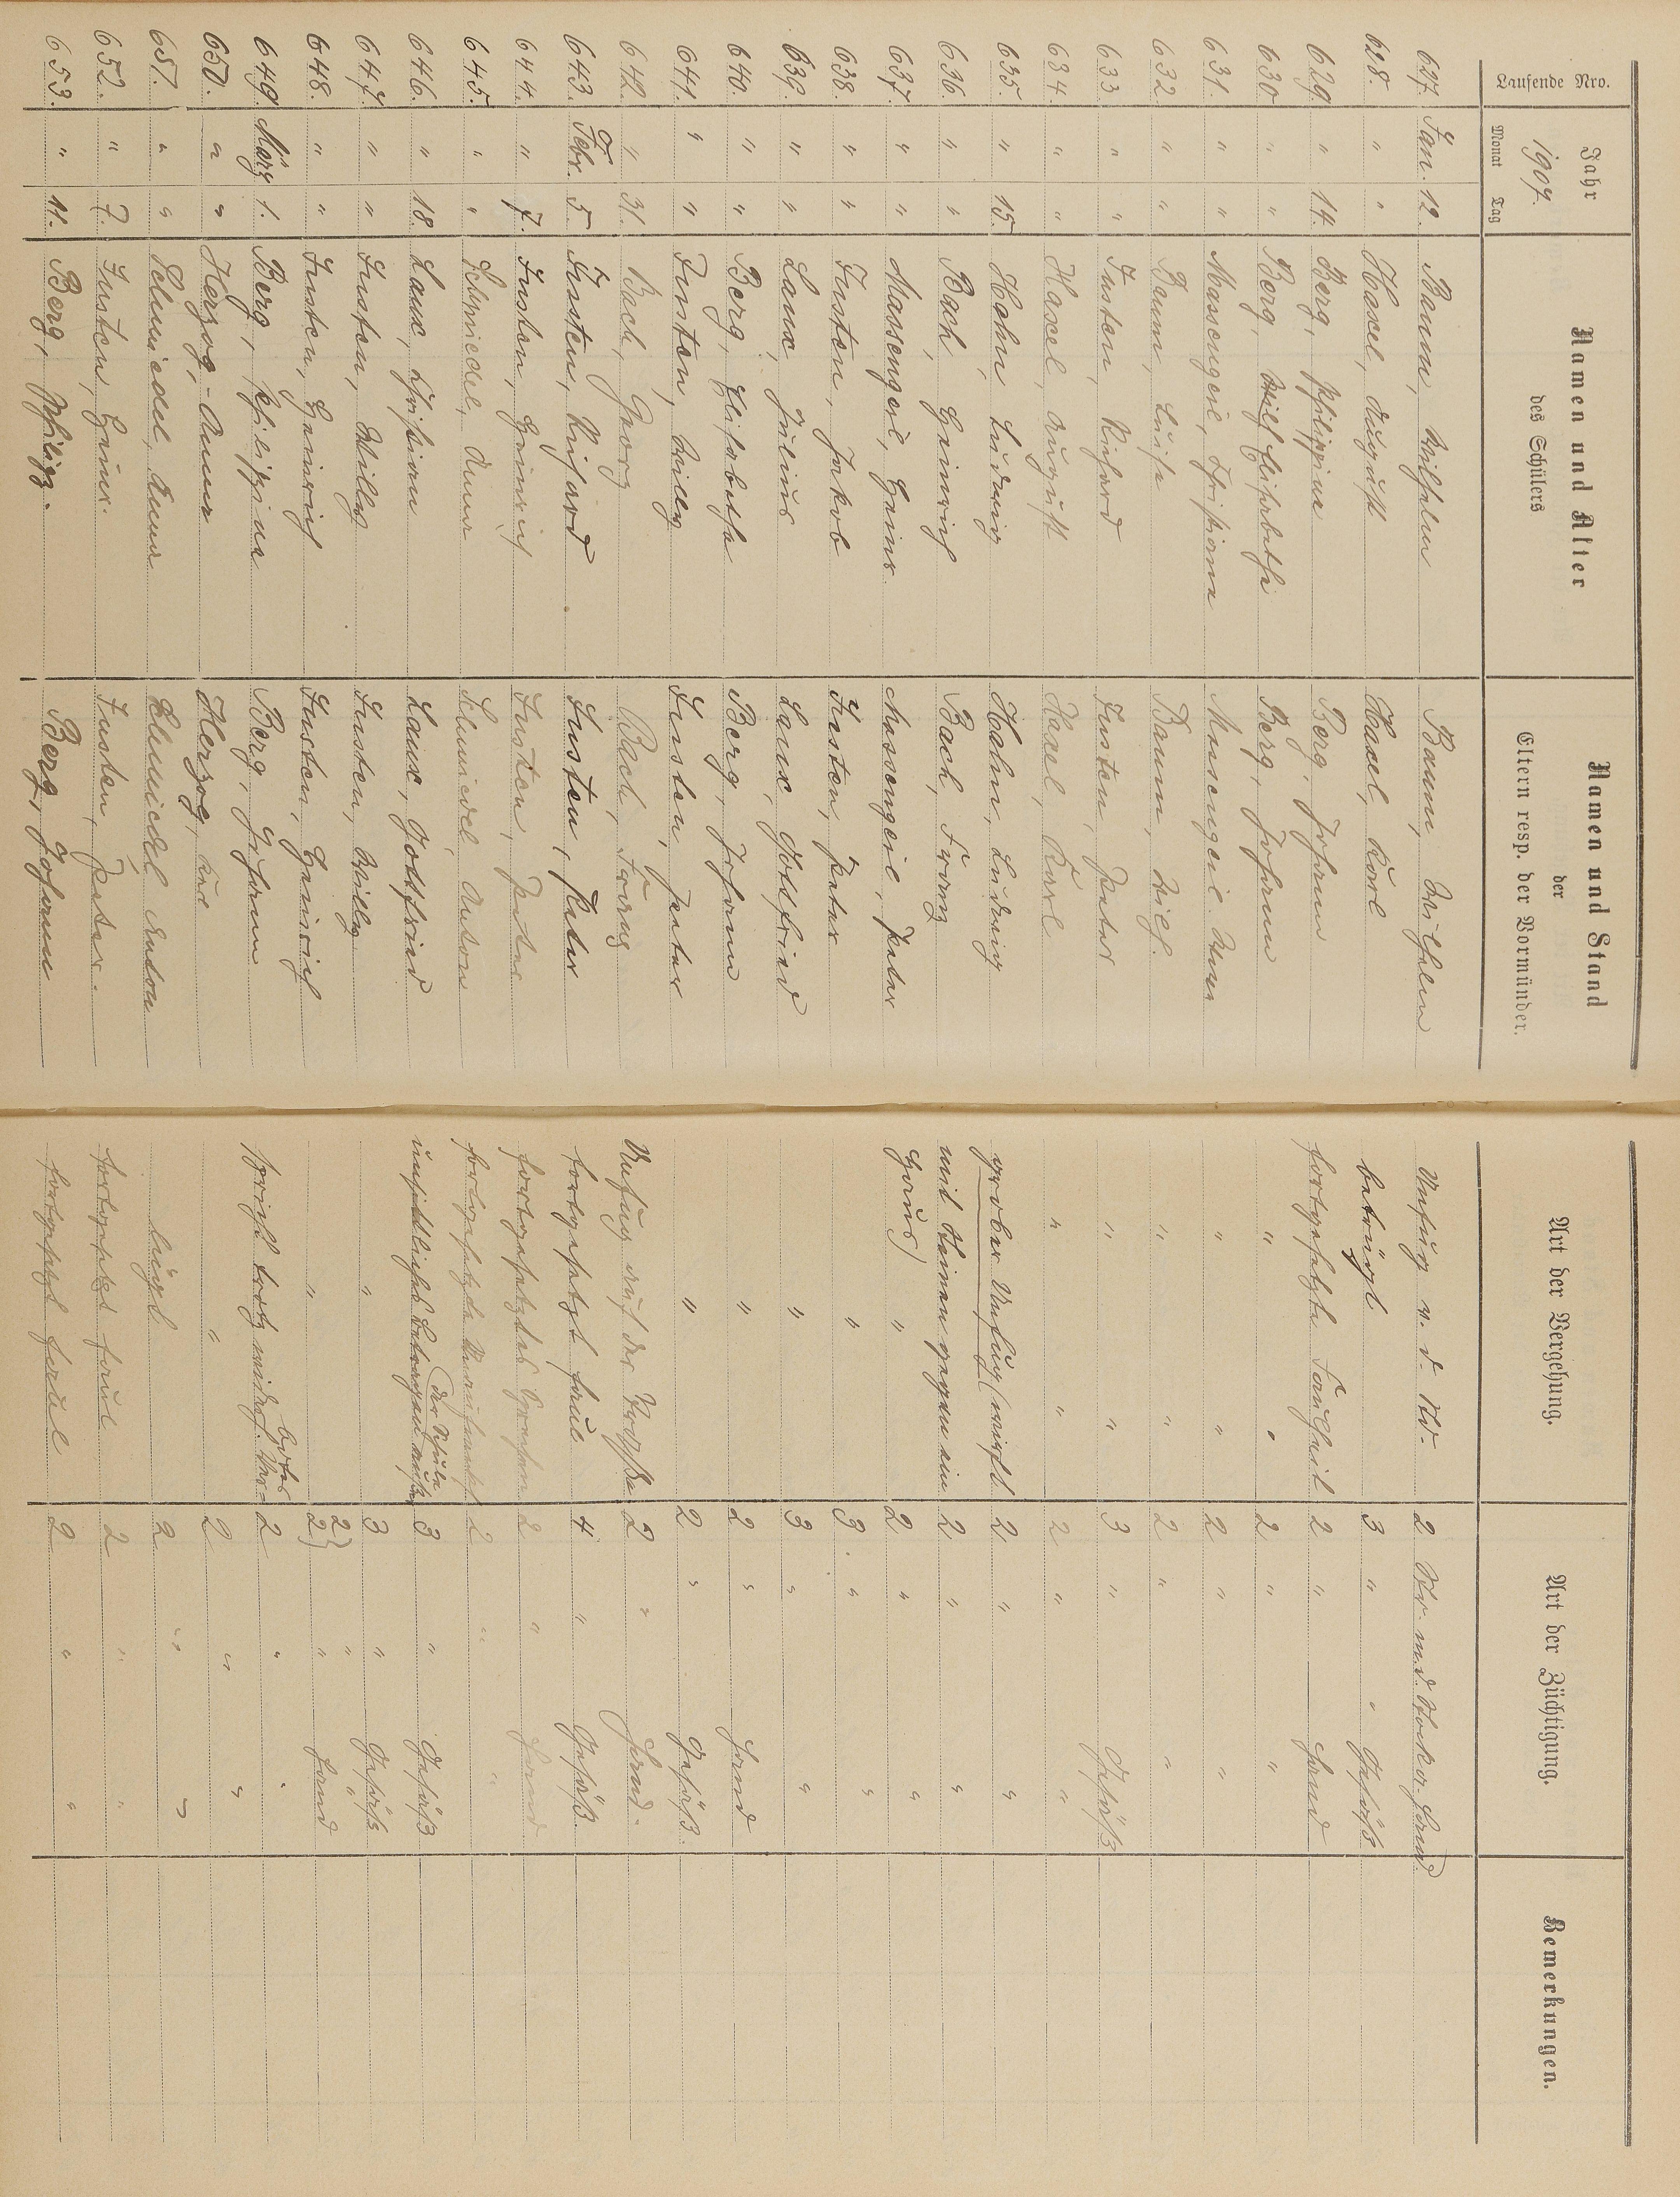 Laufende Nro. | Jahr 1907. Monat Tag | Namen und Alter des Schülers | Namen und Stand der Eltern resp. der Vormünder. | Art der Vergehung. | Art der Züchtigung. | Bemerkungen.
627. Jan. 12. Baum, Wilhelm | Baum, Wilhelm | Unfug | 2 Hand
628. " " Haxel, August | Haxel, Karl | betrügt | 3 " " Gesäß
629. " 14. Berg, Philippine | Berg, Johann | fortgesetzte Faulheit | 2 " Hand
630. " " Berg, Elisabetha | Berg, Johann | " " | 2 " "
631. " " Massengeil, Christiana | Massengeil | " " | 2 " "
632 " " Baum, Luise | Baum, Wilh. | " " | 2 " "
633 " " Justen, Richard | Justen, Peter | " " | 3 " Gesäß
634. " " Haxel, August | Haxel, Karl | " " | 2 " "
635. " 15. Hahn, Ludwig | Hahn, Ludwig | grober Unfug (wirft | 2 " "
636. " " Bach, Heinrich | Bach, Franz | mit Steinen gegen ein | 2 " "
637. " " Massengeil, Heinr. | Massengeil, Peter | Haus) " | 2 " "
638. " " Justen, Jakob | Justen, Peter | " | 3. " "
639. " " Laux, Julius | Laux, Gottfried | " | 3 " "
640. " " Berg, Elisabetha | Berg, Johann | " | 2 " Hand
641. " " Justen, Willy | Justen, Peter | " | 2 " Gesäß.
642. " 31. Bach, Georg | Bach, Franz | Unfug auf der Straße | 2 " Hand.
643. Febr. 5. Justen, Richard | Justen, Peter | fortgesetzt faul | 4 " Gesäß
644. " 7. Justen, Heinrich | Justen, Peter | fortgesetztes | 2 " Hand
645. " " Schmiedel, Anna | Schmiedel, Anton | fortgesetzte | 2 " "
646. " 18. Laux, Christian | Laux, Gottfried | unsittliches Betragen außer der Schule | 3 " Gesäß
647. " " Justen, Willy | Justen, Willy | " | 3 " Gesäß
648. " " Justen, Heinrich | Justen, Heinrich | " | 2 } " " 2 } " Hand
649. März 1. Berg, Philippine | Berg, Johann | spricht trotz wiederh. | 2 " "
650. " " Herzog, Anna | Herzog, Karl | " | 2 " "
651. " " Schmiedel, Anna | Schmiedel Anton | lügt | 2 " "
652. " 7. Justen, Heinr. | Justen, Peter. | fortgesetzt faul | 2 " "
653. " 11. Berg, Philipp. | Berg, Johann | fortgesetzt faul | 2 " "